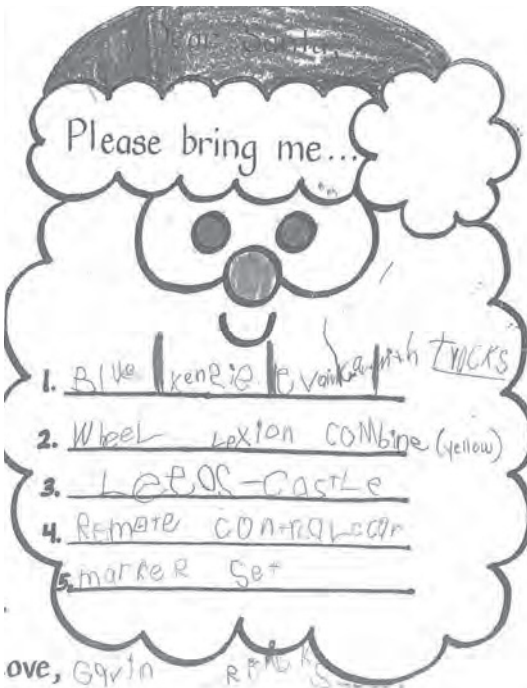 Dear Santa,
Please bring me...
1. Blue kenzie with trucks
2. Wheel Lexion combine (yellow)
3. Legos-Castle
4. Remote control car
5. marker set
ove, Gavin